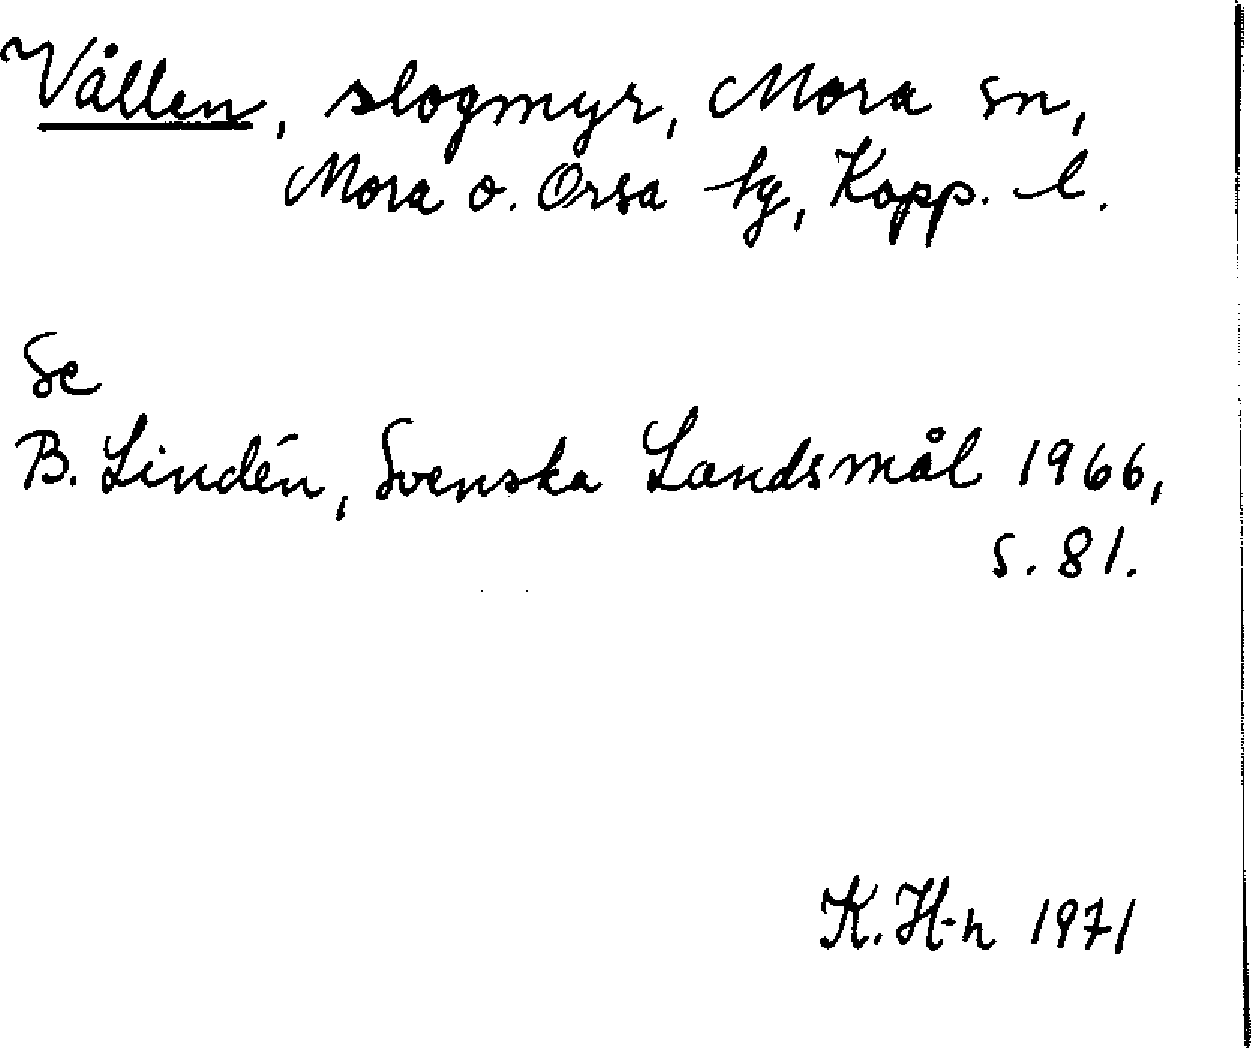 Vållen, slogmyr, Mora sn,
Mora o. Orsa tg, Kopp. l.
Se
B. Lindén, Svenska Landsmål 1966,
s. 81.
K. H-n 1971